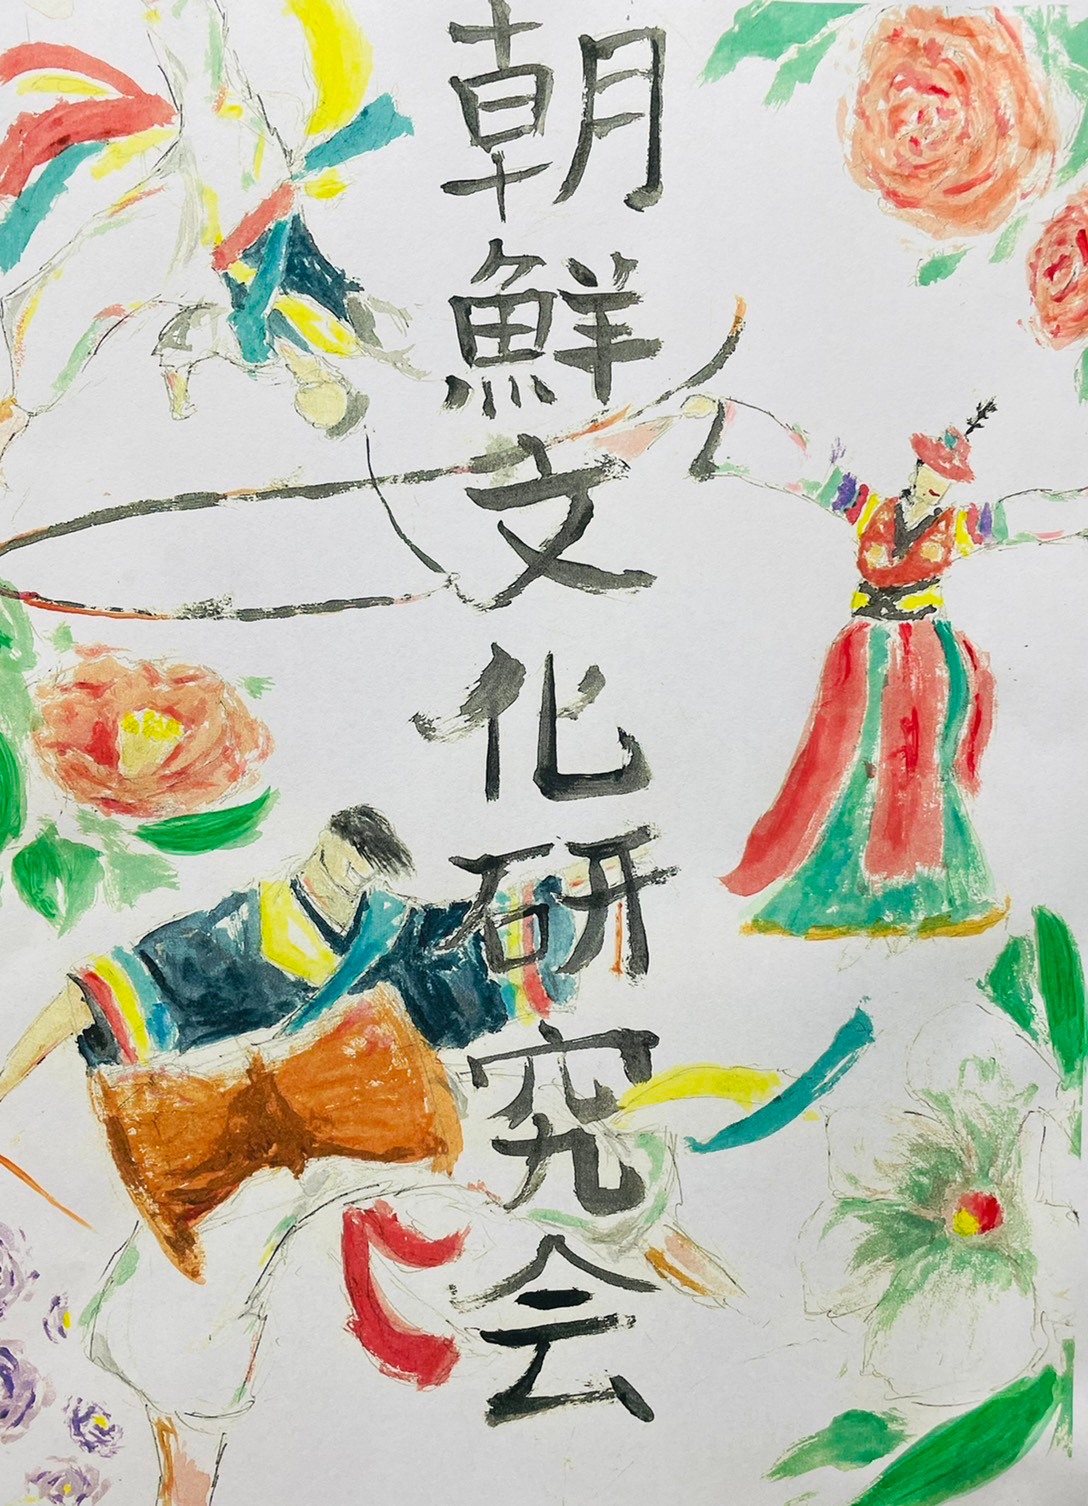 朝鮮文化研究会